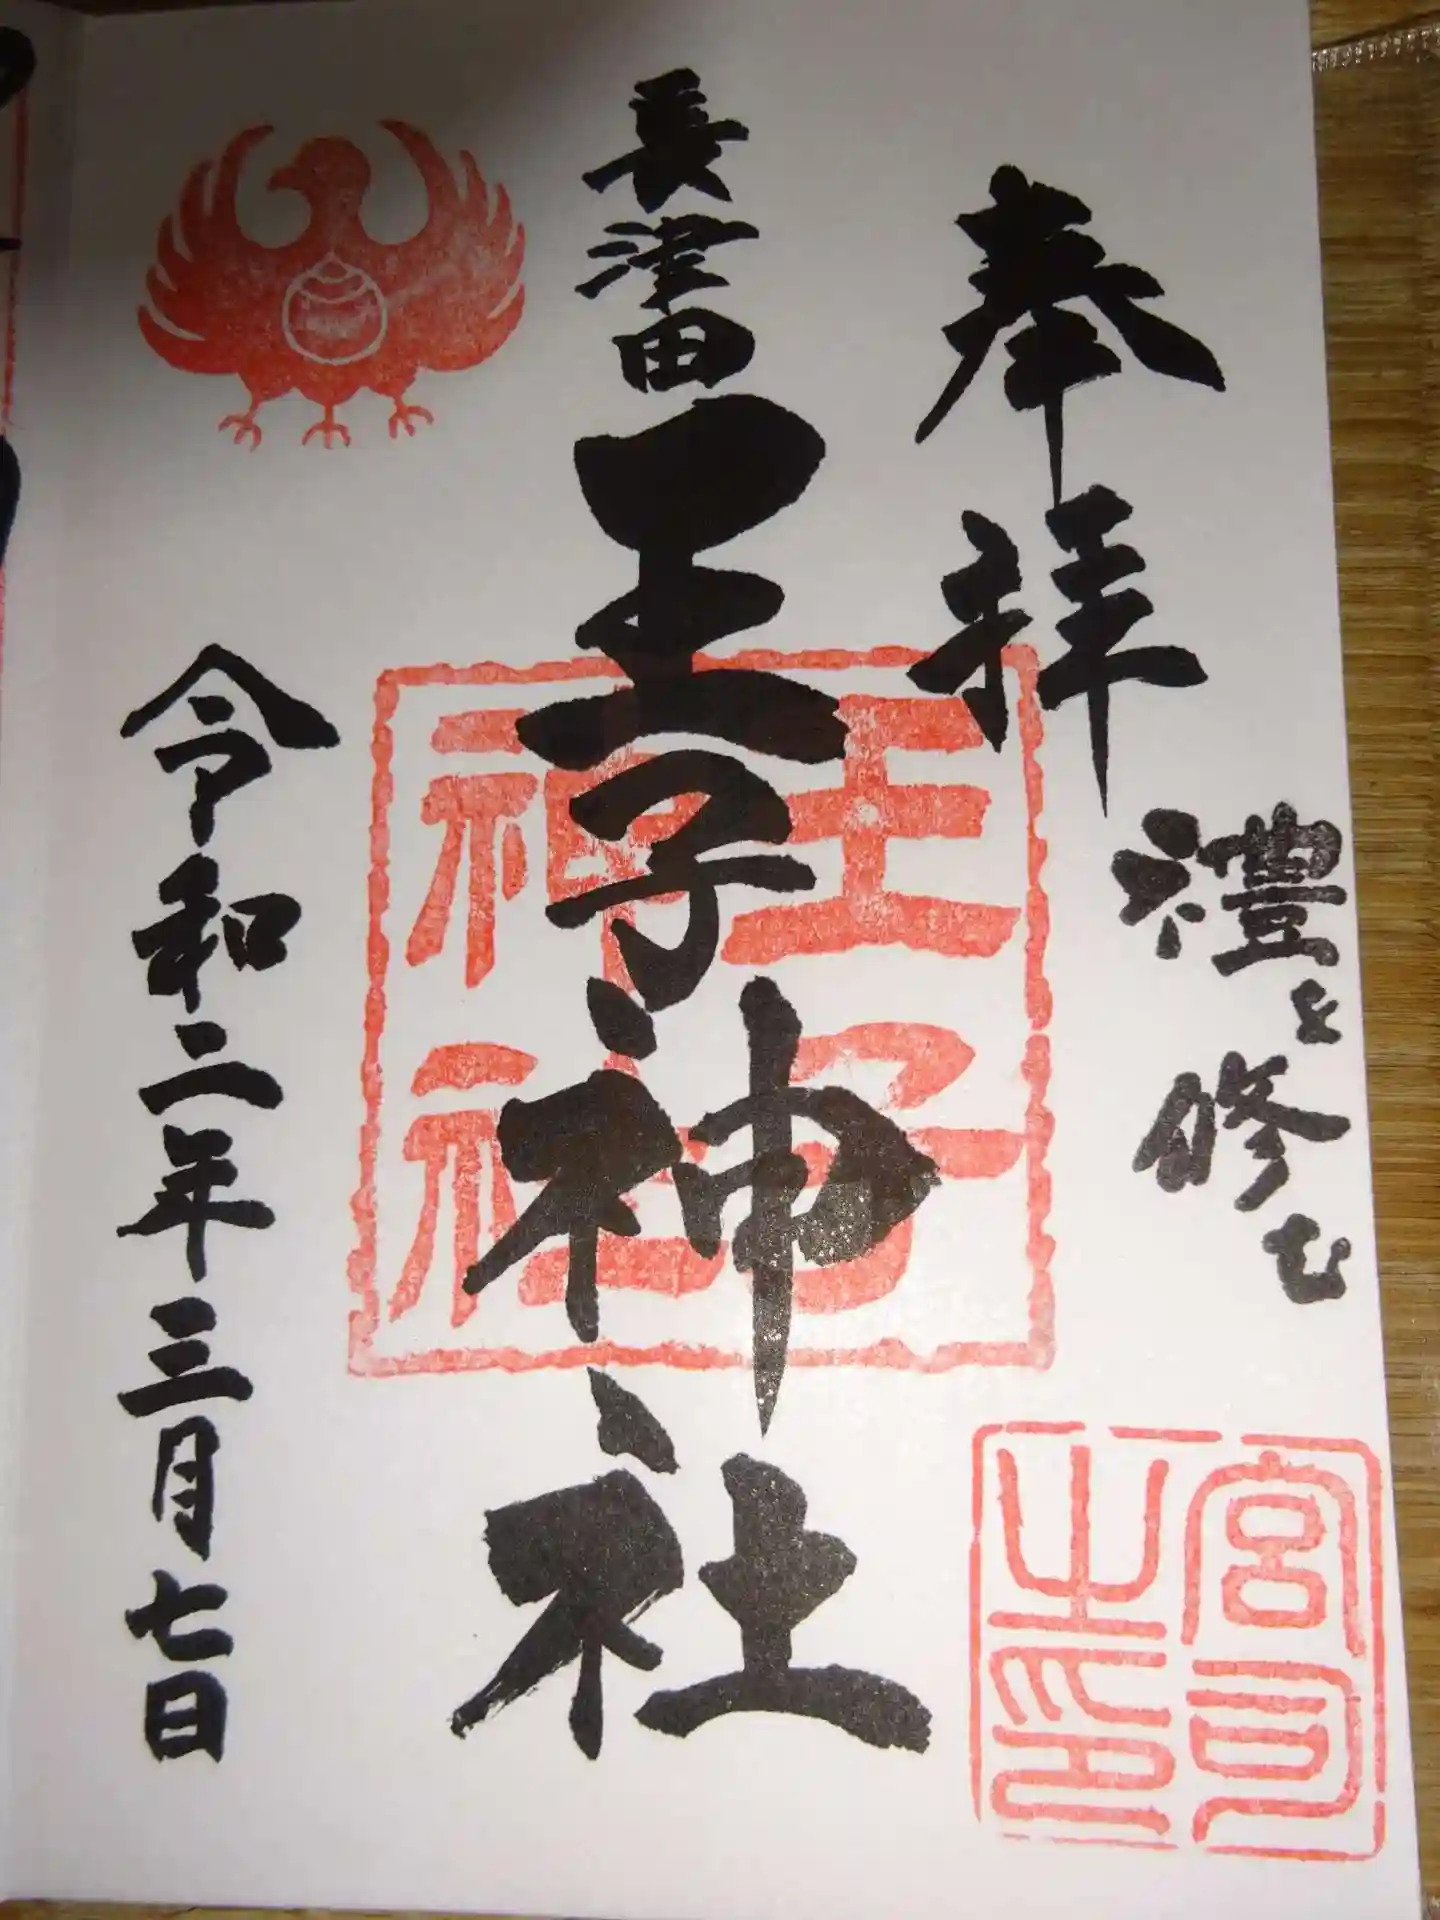 奉拝
禮を修む
宮司
之印
長津田
王子神社
王子
神社
令和二年三月七日